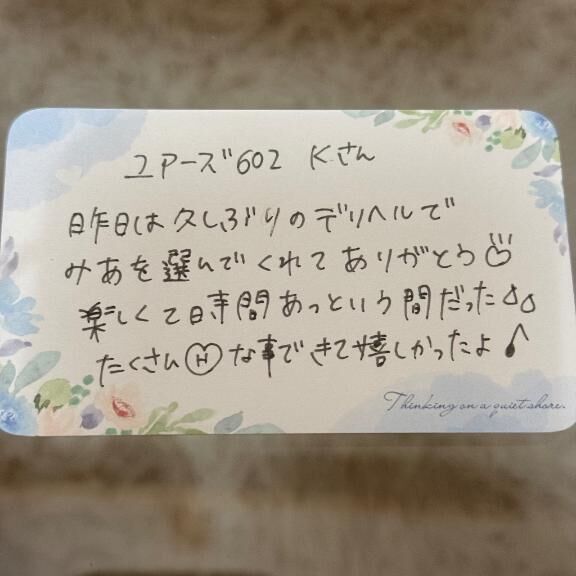 ユアーズ602 Kさん
昨日は久しぶりのデリヘルで
みあを選んでくれてありがとう
楽しくて時間あっという間だった
たくさんHな事できて嬉しかったよ♪
Thinking on a quiet shore.